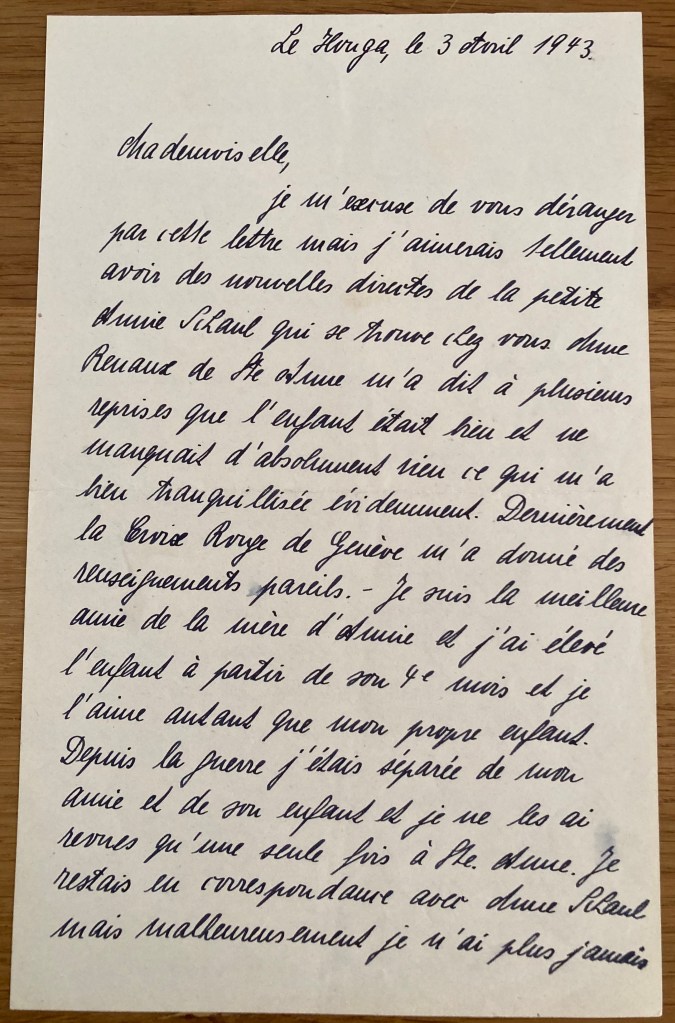 Le Houga, le 3 Avril 1943.
Mademoiselle,
je m'excuse de vous déranger
par cette lettre mais j'aimerais tellement
avoir des nouvelles directes de la petite
Annie Schaul qui se trouve chez vous. Mme
Renaux de Ste Anne m'a dit à plusieurs
reprises que l'enfant était bien et ne
manquait d'absolument rien ce qui m'a
bien tranquillisée évidemment. Dernièrement
la Croix Rouge de Genève m'a donné des
renseignements pareils. - Je suis la meilleure
amie de la mère d'Annie et j'ai élevé
l'enfant à partir de son 4e mois et je
l'aime autant que mon propre enfant.
Depuis la guerre j'étais séparée de mon
amie et de son enfant et je ne les ai
revues qu'une seule fois à Ste. Anne. Je
restais en correspondance avec Mme Schaul
mais malheureusement je n'ai plus jamais